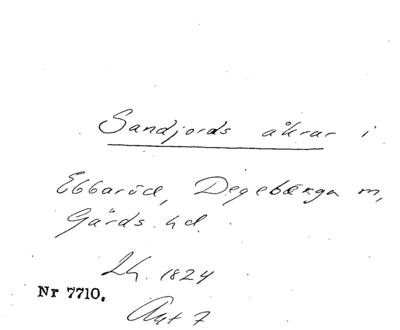 Sandjords åkrar i
Ebbaröd, Degeberga m,
Gärds hd.
Lh. 1824
Nr 7710.
Akt 7